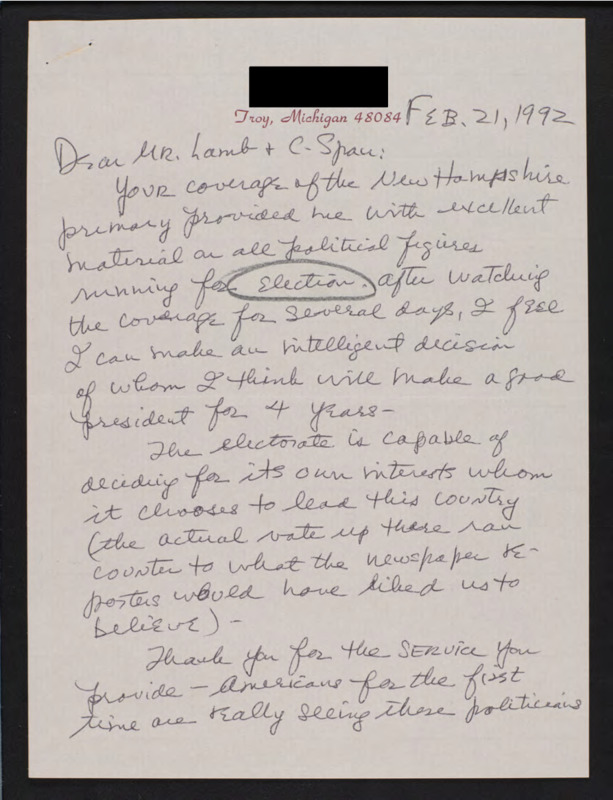 Troy, Michigan 48084 FEB. 21, 1992
Dear Mr. Lamb + C-Span:
Your coverage of the New Hampshire
primary provided me with excellent
material on all political figures
running for election. After watching
the coverage for several days, I feel
I can make an intelligent decision
of whom I think will make a good
president for 4 years-
The electorate is capable of
deciding for its own interests whom
it chooses to lead this country
(the actual vote up there ran
counter to what the newspaper re-
porters would have liked us to
believe) -
Thank you for the service you
provide - Americans for the first
time are really seeing these politicians